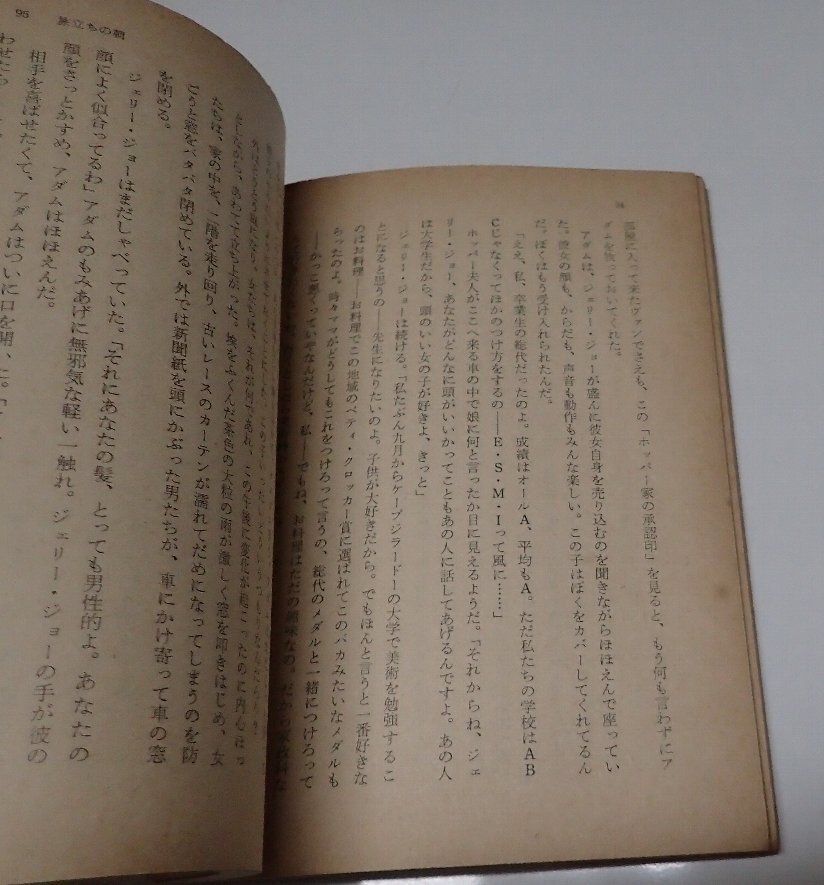 94
部屋に入って来たヴァンでさえも、この「ホッパー家の承認印」を見ると、もう何も言わずにア
ダムを放っておいてくれた。
アダムは、ジェリー・ジョーが盛んに彼女自身を売り込むのを聞きながらほほえんで座ってい
た。彼女の顔も、からだも、声音も動作もみんな楽しい。この子はぼくをカバーしてくれてるん
だ。ぼくはもう受け入れられたんだ。
「ええ、私、卒業生の総代だったのよ。成績はオールA、平均もA。ただ私たちの学校はAB
Cじゃなくってほかのつけ方をするの――E・S・M・Iって風に……」
ホッパー夫人がここへ来る車の中で娘に何と言ったか目に見えるようだ。「それからね、ジェ
リー・ジョー、あなたがどんなに頭がいいかってこともあの人に話してあげるんですよ。あの人
は大学生だから、頭のいい女の子が好きよ、きっと」
ジェリー・ジョーは続ける。「私たぶん九月からケープジラードーの大学で美術を勉強するこ
とになると思うの――先生になりたいのよ。子供が大好きだから。でもほんと言うと一番好きな
のはお料理――お料理でこの地域のベティ・クロッカー賞に選ばれてこのバカみたいなメダルも
らったのよ。時々ママがどうしてもこれをつけろって言うの、総代のメダルと一緒につけろって
――かっこ悪くっていやなんだけど、私――でもね、お料理はただの趣味なの。だから
95 旅立ちの朝
外は
をしながら、あわてて立ち上がった。埃をふくんだ茶色の大粒の雨が激しく窓を叩きはじめ、女
たちは、家の中を、二階を走り回り、古いレースのカーテンが濡れてだめになってしまうのを防
ごうと窓をバタバタ閉めている。外では新聞紙を頭にかぶった男たちが、車にかけ寄って車の窓
を閉める。
ジェリー・ジョーはまだしゃべっていた。「それにあなたの髪、とっても男性的よ。あなたの
顔によく似合ってるわ」アダムのもみあげに無邪気な軽い一触れ。ジェリー・ジョーの手が彼の
顔をさっとかすめ、アダムはほほえんだ。
相手を喜ばせたくて、アダムはついに口を開いた。
わせたら